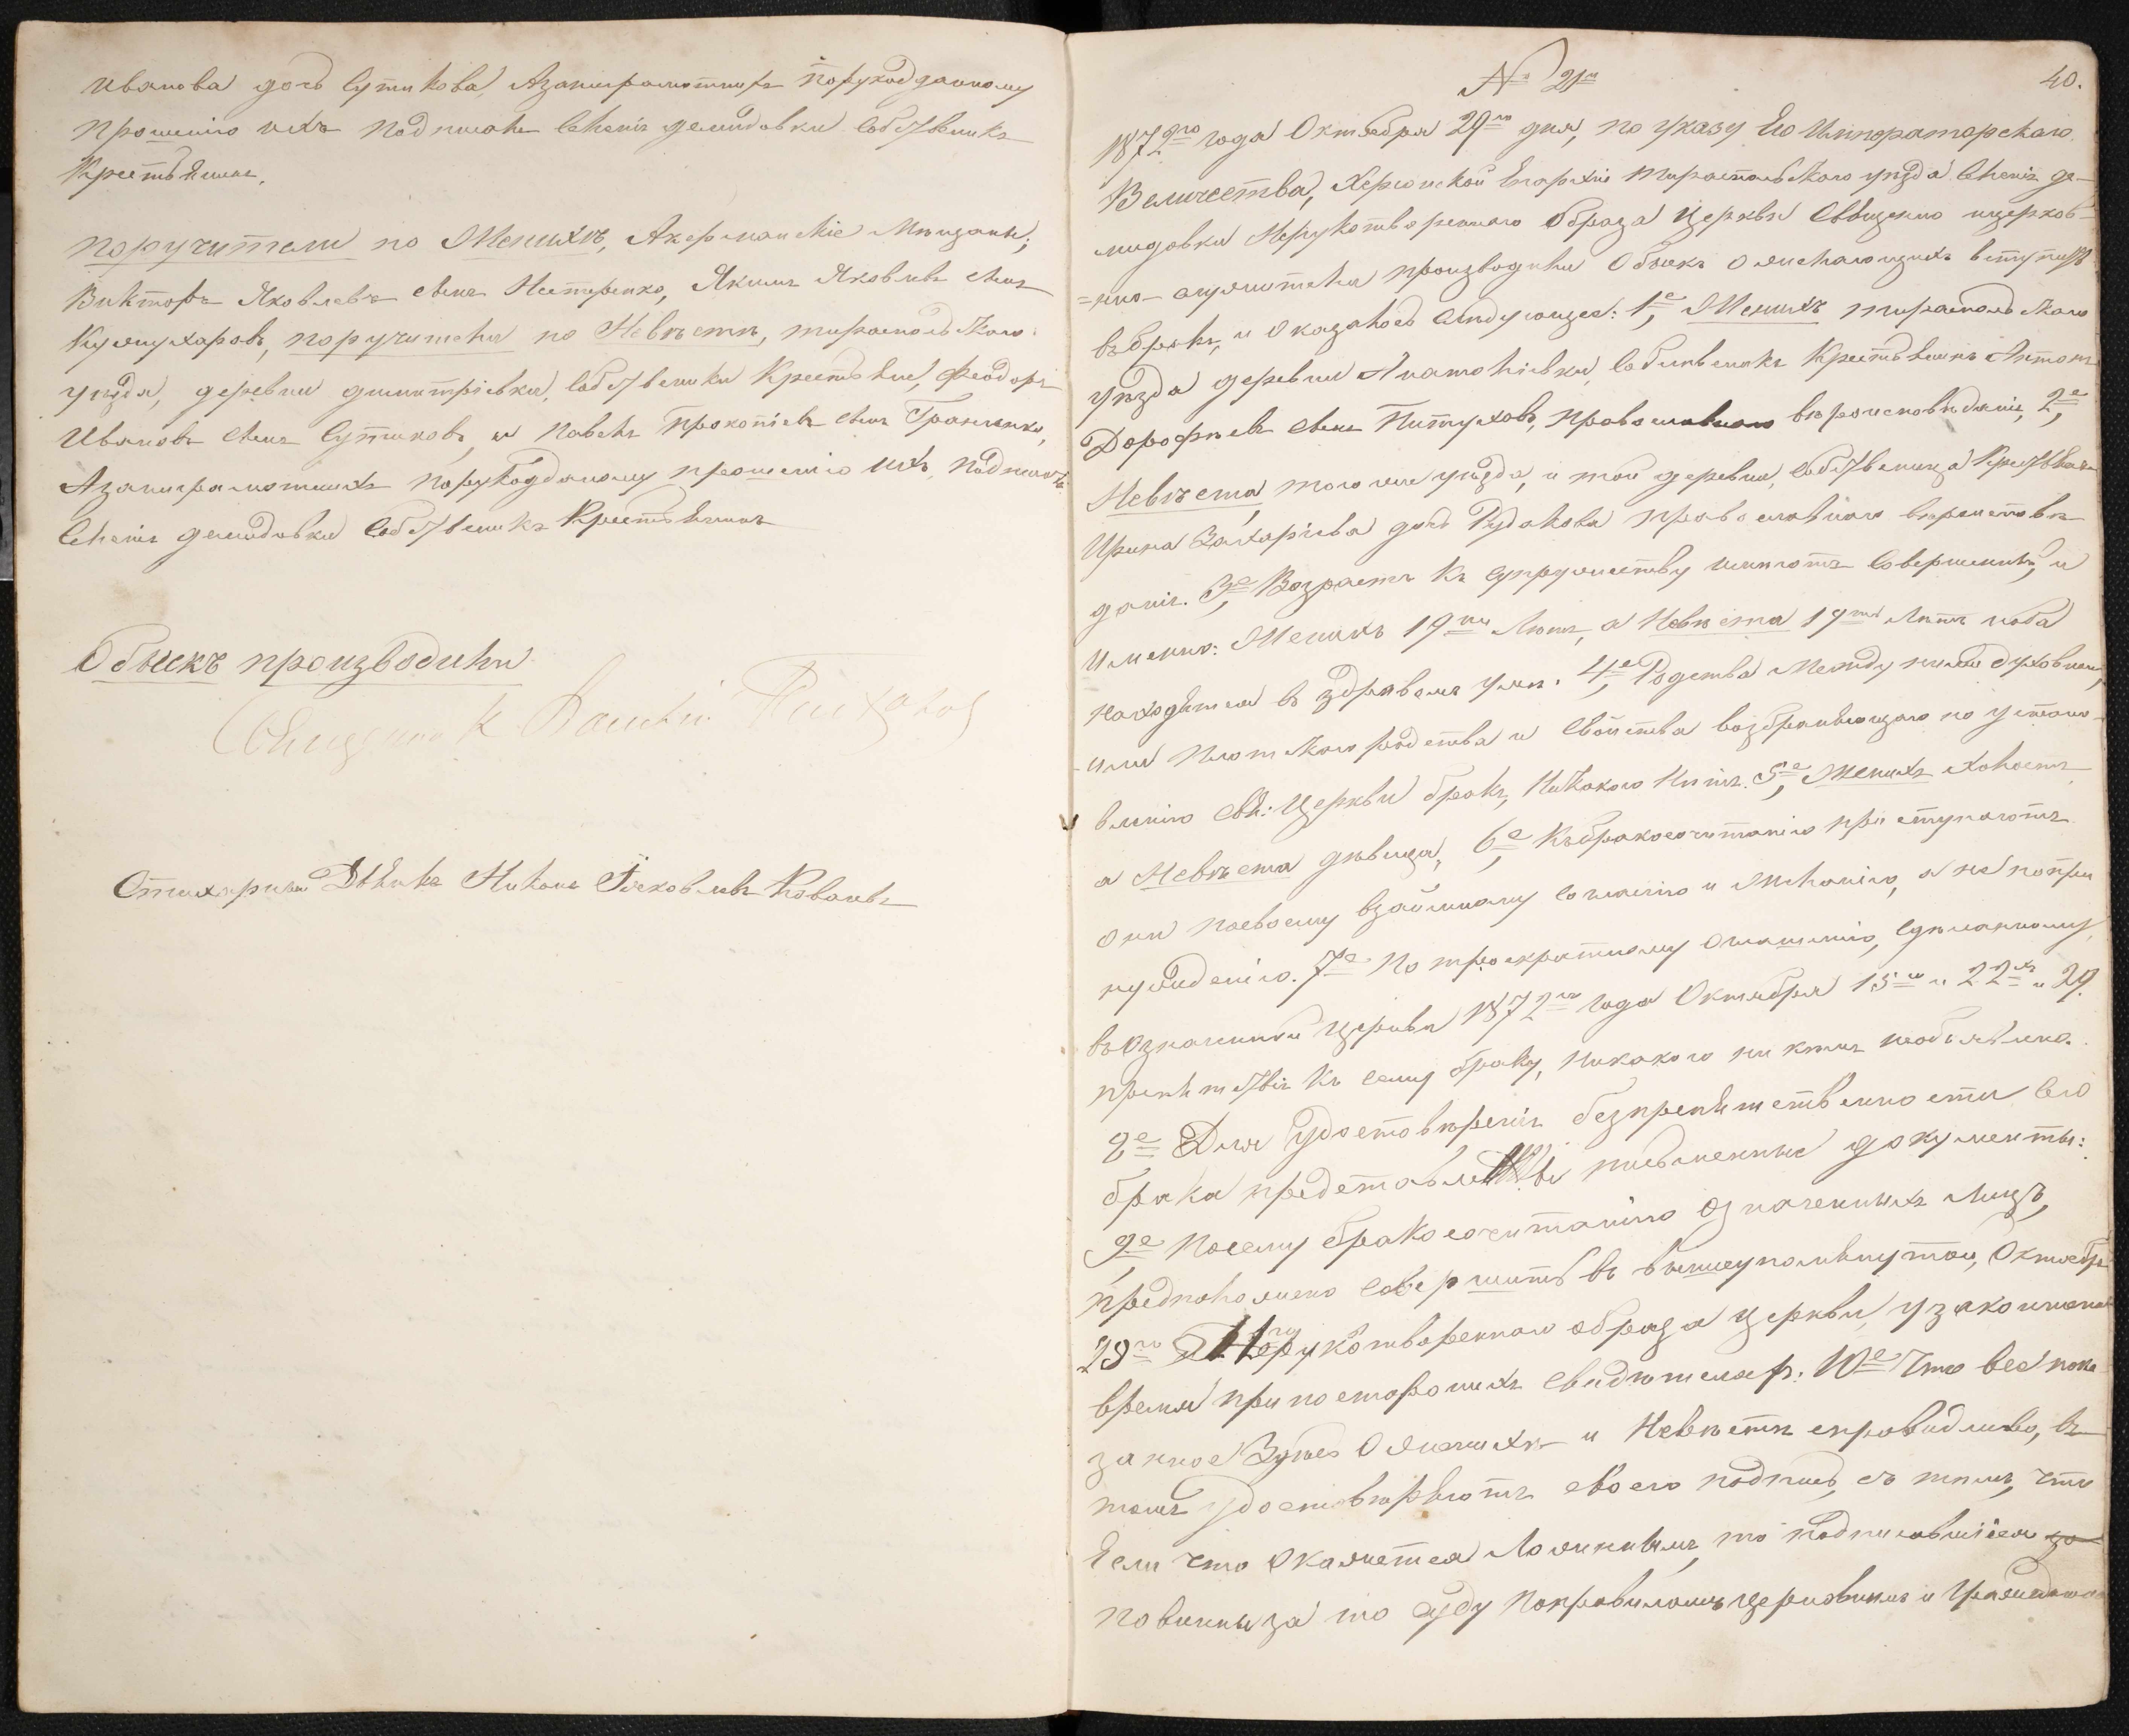 Иванова дочь Сутикова, Азанеграмотныхъ Порукоуданному
прошенію ихъ подписался селенія демидовки собственникъ
Крестьянинъ.
поручители по Женихѣ, Акерманскіе Мѣщане;
Викторъ Яковлевъ сынъ Нестеренко, Якимъ Яковлевъ сынъ
Кушнухаровъ, поручители по Невѣстѣ, тираспольскаго
уѣзда, деревни димитріевки, собственники Крестьяне, Феодоръ
Ивановъ сынъ Сутиковъ, и Павелъ Прокопіевъ сынъ
Азанеграмотныхъ порукоуданому прошенію ихъ, подписался
селенія демидовки собственникъ Крестьянинъ
Обыскъ производили
Священникъ
Стихарный Дьякъ Никонъ Яковлевъ Ковалевъ
№ 21й
40.
1872го года Октября 29го дня, по указу Его Императорскаго
Величества, Херсонской Епархіи Тираспольскаго уѣзда селенія де-
мидовки Нерукотвореннаго Образа Церкви Священно ицерков-
=но-служители производили Обыскъ о желающихъ вступить
въбракъ, и оказалось слѣдующее: 1е, Женихъ тираспольскаго
уѣзда деревни Анатоліевки, собственникъ Крестьянинъ Антонъ
Дорофѣевъ сынъ Питуховъ, православнаго вѣроисповѣданія, 2е,
Невѣста, того же уѣзда, и той деревни, собственница Крестьянка
Ирина Захаріева дочь Рудакова православнаго вѣроисповѣ-
данія. 3е, Возрастъ къ супружеству имѣютъ совершенный, и
именно: Женихъ 19ти Лѣтъ, а Невѣста 19ти Лѣтъ иоба
находятся въ здравомъ умѣ. 4е, Родства Между ними духовнаго,
-или плотскаго родства и свойства возбраняющаго по устано-
вленію Св: Церкви бракъ, Никакого Нѣтъ. 5е, Женихъ холостъ
а Невѣста дѣвица, 6е, Къбракосочитанію приступаютъ
они посвоему взаимному согласію и желанію, а не попри
нужденію. 7е По троекратному оглашенію, сдѣланному
въозначенной церкви 1872го года Октября 15го и 22го и 29.
препятствія къ сему браку, никакого ни кѣмъ необъявлено.
8е Для удостовѣренія безпрепятственности сего
брака представлены письменные документы:
9е, Посему бракосочитанію означенныхъ лицъ,
предположено совершить въ вышеупомянутой, Октября
29го Нерукотвореннаго образа церкви, узаконенное
время при постороннихъ свидѣтеляхъ. 10е, Что все пока
занное Здѣсь О женихѣ и Невѣстѣ справедливо, въ
томъ удостовѣряютъ своею подписью, съ тѣмъ, что
Если что окажется Ложнымъ, то подписавшіеся
повинны за то суду поправиламъ церковнымъ и Гражданскимъ